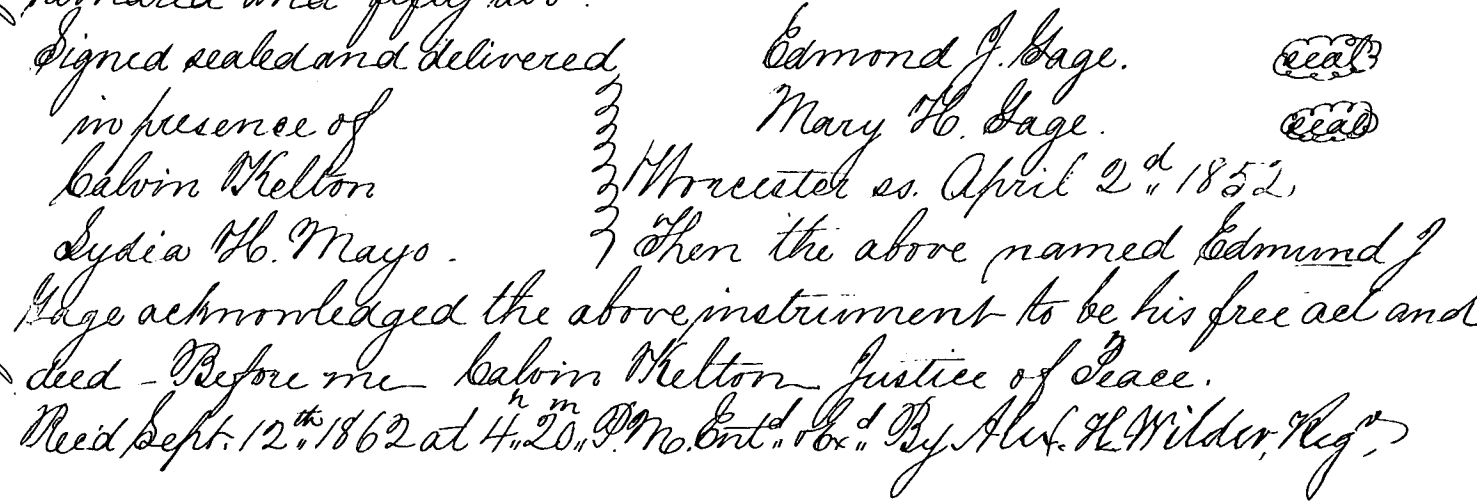 hundred and fifty two.
Signed sealed and delivered Edmond J. Gage. seal
in presence of Mary H. Gage. seal
Calvin Kelton Worcester ss. April 2d 1852
Lydia H. Mayo. Then the above named Edmund J
Gage acknowledged the above instrument to be his free act and
deed - Before me Calvin Kelton Justice of Peace.
Rec'd Sept. 12th 1862 at 4h 20m P.M. Entd & Exd By Alex. H. Wilder, Regr